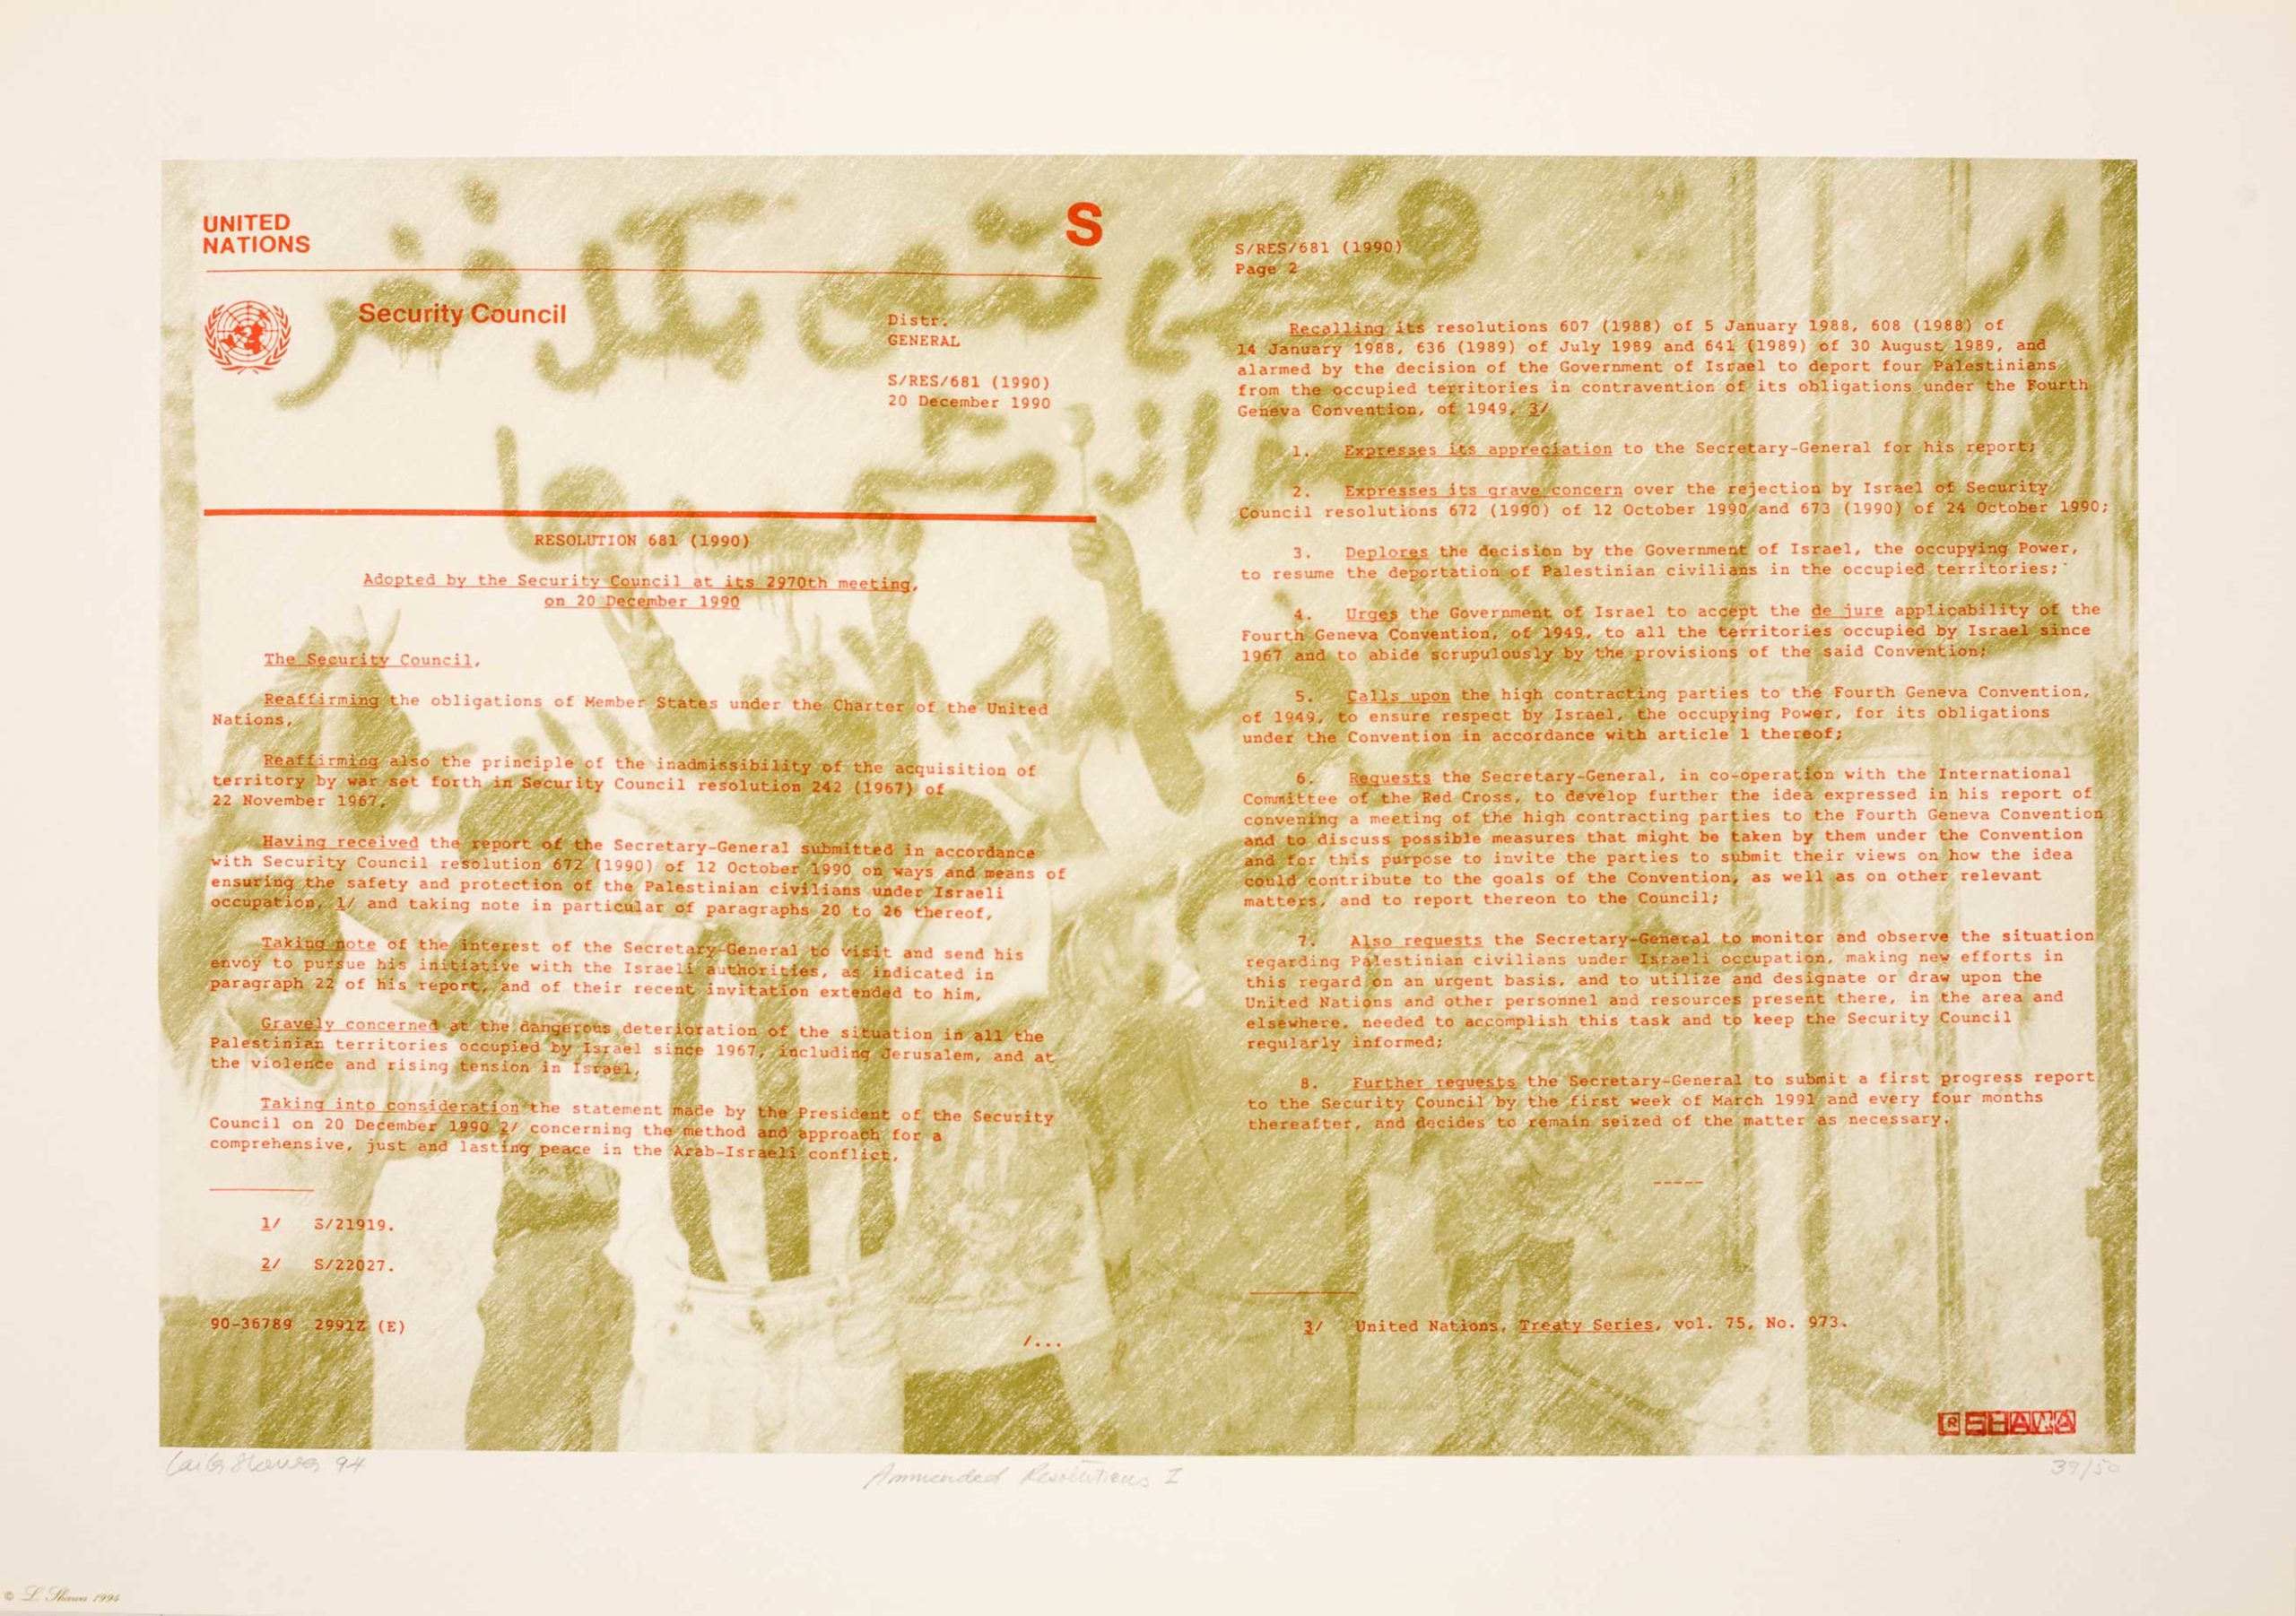 UNITED
NATIONS
S
Security Council
Distr.
GENERAL
S/RES/681 (1990)
20 December 1990
RESOLUTION 681 (1990)
Adopted by the Security Council at its 2970th meeting,
on 20 December 1990
The Security Council,
Reaffirming the obligations of Member States under the Charter of the United
Nations,
Reaffirming also the principle of the inadmissibility of the acquisition of
territory by war set forth in Security Council resolution 242 (1967) of
22 November 1967,
Having received the report of the Secretary-General submitted in accordance
with Security Council resolution 672 (1990) of 12 October 1990 on ways and means of
ensuring the safety and protection of the Palestinian civilians under Israeli
occupation, 1/ and taking note in particular of paragraphs 20 to 26 thereof,
Taking note of the interest of the Secretary-General to visit and send his
envoy to pursue his initiative with the Israeli authorities, as indicated in
paragraph 22 of his report, and of their recent invitation extended to him,
Gravely concerned at the dangerous deterioration of the situation in all the
Palestinian territories occupied by Israel since 1967, including Jerusalem, and at
the violence and rising tension in Israel,
Taking into consideration the statement made by the President of the Security
Council on 20 December 1990 2/ concerning the method and approach for a
comprehensive, just and lasting peace in the Arab-Israeli conflict,
1/ S/21919.
2/ S/22027.
90-36789 2991Z (E)
/...
S/RES/681 (1990)
Page 2
Recalling its resolutions 607 (1988) of 5 January 1988, 608 (1988) of
14 January 1988, 636 (1989) of July 1989 and 641 (1989) of 30 August 1989, and
alarmed by the decision of the Government of Israel to deport four Palestinians
from the occupied territories in contravention of its obligations under the Fourth
Geneva Convention, of 1949, 3/
1. Expresses its appreciation to the Secretary-General for his report;
2. Expresses its grave concern over the rejection by Israel of Security
Council resolutions 672 (1990) of 12 October 1990 and 673 (1990) of 24 October 1990;
3. Deplores the decision by the Government of Israel, the occupying Power,
to resume the deportation of Palestinian civilians in the occupied territories;
4. Urges the Government of Israel to accept the de jure applicability of the
Fourth Geneva Convention, of 1949, to all the territories occupied by Israel since
1967 and to abide scrupulously by the provisions of the said Convention;
5. Calls upon the high contracting parties to the Fourth Geneva Convention,
of 1949, to ensure respect by Israel, the occupying Power, for its obligations
under the Convention in accordance with article 1 thereof;
6. Requests the Secretary-General, in co-operation with the International
Committee of the Red Cross, to develop further the idea expressed in his report of
convening a meeting of the high contracting parties to the Fourth Geneva Convention
and to discuss possible measures that might be taken by them under the Convention
and for this purpose to invite the parties to submit their views on how the idea
could contribute to the goals of the Convention, as well as on other relevant
matters, and to report thereon to the Council;
7. Also requests the Secretary-General to monitor and observe the situation
regarding Palestinian civilians under Israeli occupation, making new efforts in
this regard on an urgent basis, and to utilize and designate or draw upon the
United Nations and other personnel and resources present there, in the area and
elsewhere, needed to accomplish this task and to keep the Security Council
regularly informed;
8. Further requests the Secretary-General to submit a first progress report
to the Security Council by the first week of March 1991 and every four months
thereafter, and decides to remain seized of the matter as necessary.
-----
3/ United Nations, Treaty Series, vol. 75, No. 973.
SHAWA
Laila Shawa 94
Ammended Resolutions I
39/50
© L. Shawa 1994